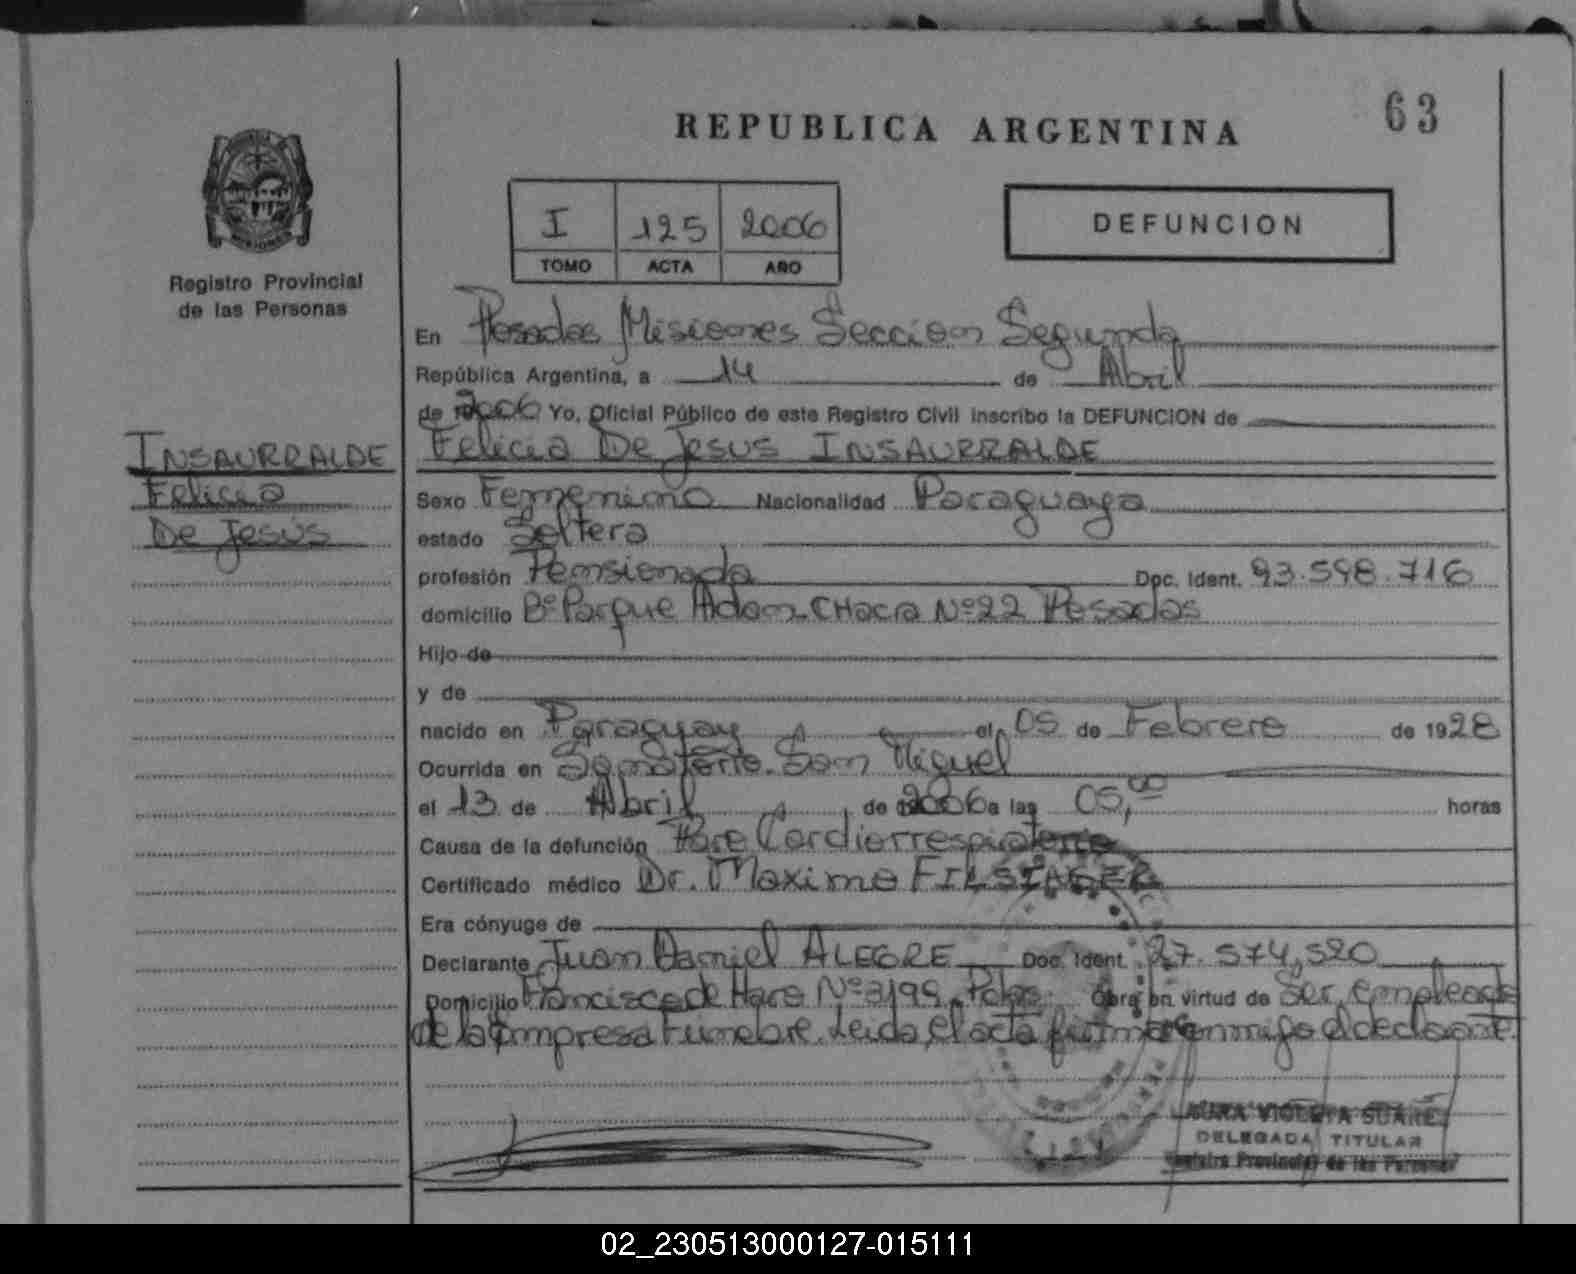 63
REPUBLICA ARGENTINA
I 125 2006
TOMO ACTA AÑO
DEFUNCION
Registro Provincial
de las Personas
En Posadas Misiones Seccion Segunda
República Argentina, a 14 de Abril
de 2006 Yo, Oficial Público de este Registro Civil inscribo la DEFUNCION de
INSAURRALDE
Felicia
De Jesús
Felicia De Jesus INSAURRALDE
Sexo Femenino Nacionalidad Paraguaya
estado Soltera
profesión Pensionada Doc. Ident. 93.598.716
domicilio Bº Parque Adam CHacra Nº 22 Posadas
Hijo de
y de
nacido en Paraguay el 05 de Febrero de 1928
Ocurrida en Sanatorio San Miguel
el 13 de Abril de 2006 a las 05,00 horas
Causa de la defunción Paro Cardiorrespiratorio
Certificado médico Dr. Maximo
Era cónyuge de
Declarante Juan Daniel ALEGRE Doc. Ident. 27.574,520
Domicilio Francisco de Haro Nº Pdas. Obra en virtud de Ser empleado
de la Empresa Funebre. Leida el acta firma conmigo el declarante.
LAURA VIOLETA SUAREZ
DELEGADA TITULAR
Registro Provincial de las Personas
02_230513000127-015111